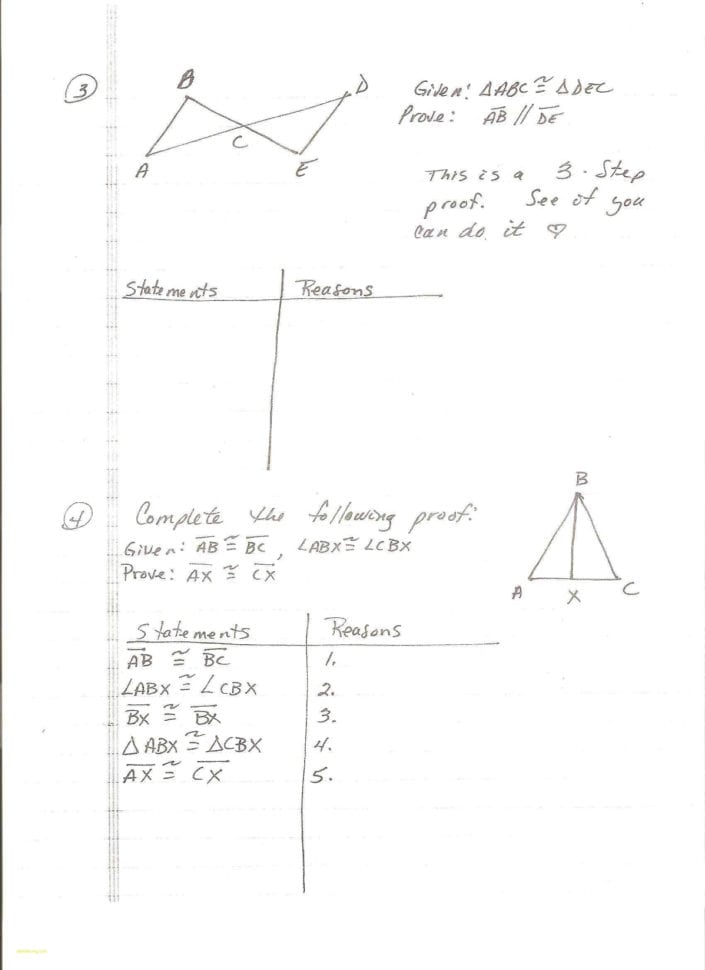 ③
B
D
C
A
E
Given: △ABC ≅ △DEC
Prove: AB // DE
This is a 3-Step
proof. See if you
can do it ♡
Statements Reasons
④ Complete the following proof:
Given: AB ≅ BC, ∠ABX ≅ ∠CBX
Prove: AX ≅ CX
B
A
X
C
Statements Reasons
AB ≅ BC 1.
∠ABX ≅ ∠CBX 2.
BX ≅ BX 3.
△ABX ≅ △CBX 4.
AX ≅ CX 5.